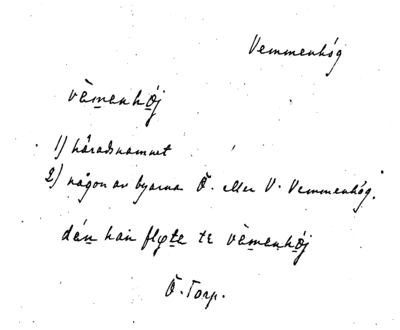 Vemmenhög
vèmenhǿj
1) häradsnamnet
2) någon av byarna Ö. eller V. Vemmenhög.
dán han flyte te vèmenhǿj
Ö. Torp.